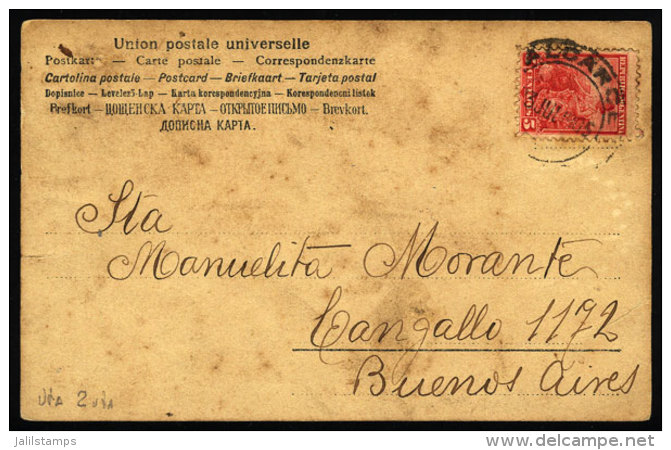 Union postale universelle
Postkart — Carte postale — Correspondenzkarte
Cartolina postale — Postcard — Briefkaart — Tarjeta postal
Dopisnice — Levelező-Lap — Karta korespondencyjna — Korespondencni listok
Brefkort — ЦОЩЕНСКА КАРТА — ОТКРЫТОЕ ПИСЬМО — Brevkort.
ДОПИСНА КАРТА.
Sta
Manuelita Morante
Cangallo 1172
Buenos Aires
5
JUL
2
jalilstamps
delcampe.net